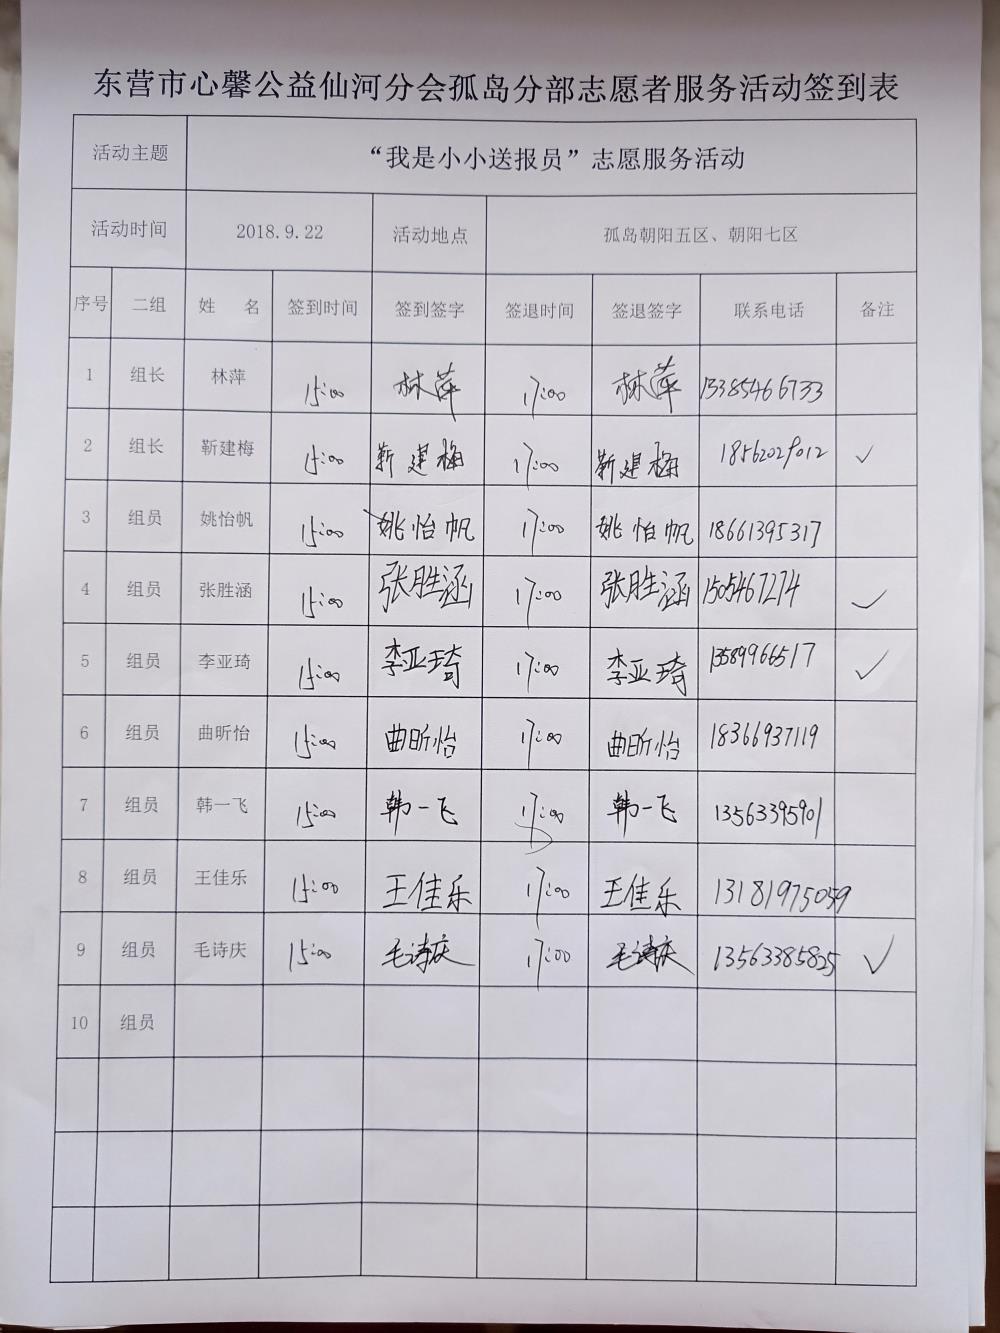 东营市心馨公益仙河分会孤岛分部志愿者服务活动签到表
活动主题 “我是小小送报员”志愿服务活动
活动时间 2018.9.22 活动地点 孤岛朝阳五区、朝阳七区
序号 二组 姓 名 签到时间 签到签字 签退时间 签退签字 联系电话 备注
1 组长 林萍 15:00 林萍 17:00 林萍 13385466733
2 组长 靳建梅 15:00 靳建梅 17:00 靳建梅 18562029012 ✓
3 组员 姚怡帆 15:00 姚怡帆 17:00 姚怡帆 18661395317
4 组员 张胜涵 15:00 张胜涵 17:00 张胜涵 1505467274 ✓
5 组员 李亚琦 15:00 李亚琦 17:00 李亚琦 13589966517 ✓
6 组员 曲昕怡 15:00 曲昕怡 17:00 曲昕怡 18366937119
7 组员 韩一飞 15:00 韩一飞 17:00 韩一飞 13563395901
8 组员 王佳乐 15:00 王佳乐 17:00 王佳乐 13181975059
9 组员 毛诗庆 15:00 毛诗庆 17:00 毛诗庆 13563385825 ✓
10 组员